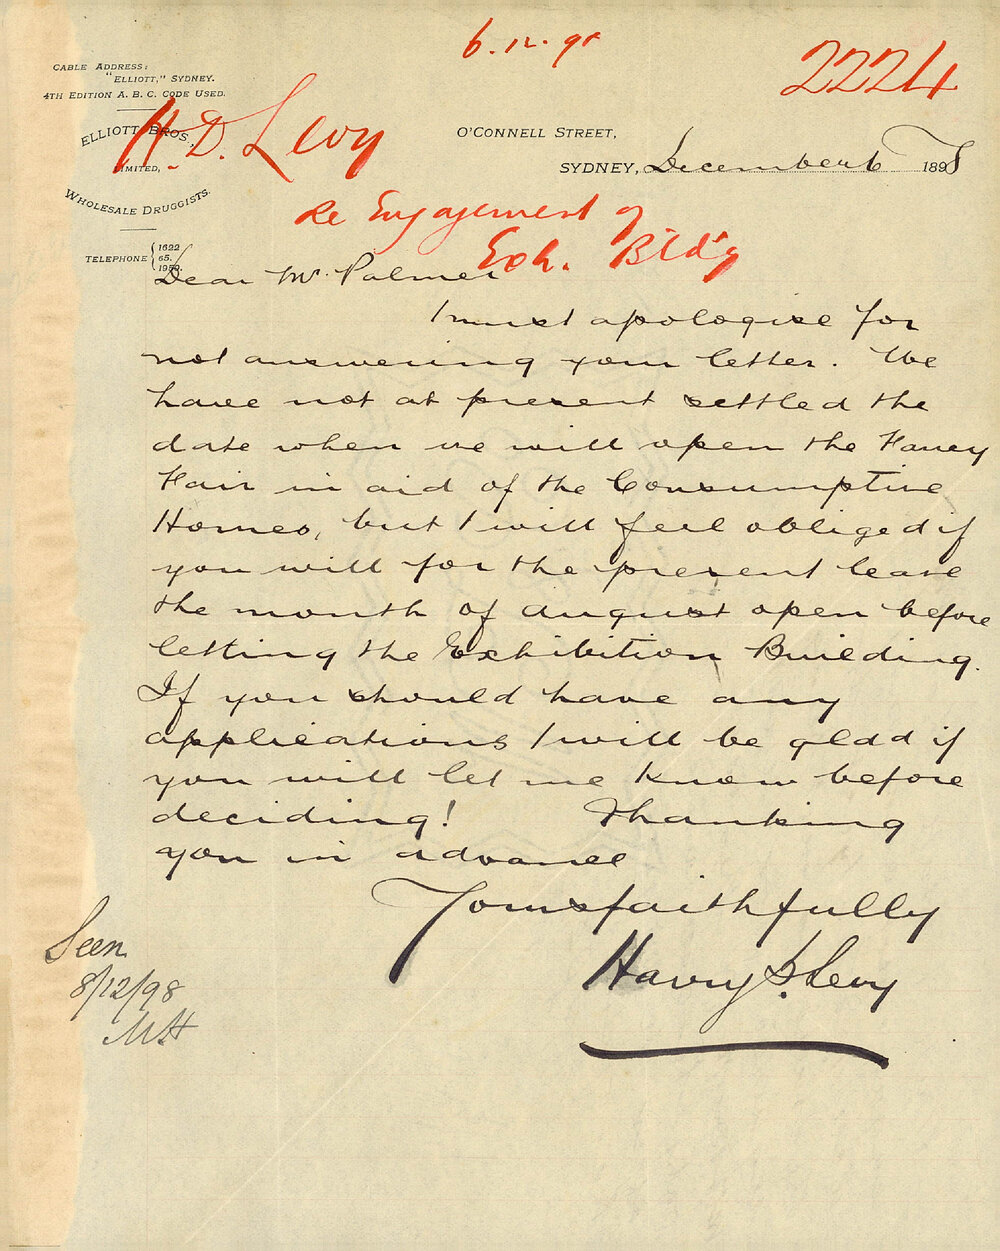 6.12.98
2224
CABLE ADDRESS:
"ELLIOTT," SYDNEY.
4TH EDITION A.B.C. CODE USED.
ELLIOTT BROS.,
LIMITED,
WHOLESALE DRUGGISTS.
TELEPHONE { 1622
65.
1953.
H. D. Levy
O'CONNELL STREET,
SYDNEY, December 6 1898
Re Engagement of
Exh. Bldg
Dear Mr. Palmer
I must apologise for
not answering your letter. We
have not at present settled the
date when we will open the Fancy
Fair in aid of the Consumptive
Homes, but I will feel obliged if
you will for the present leave
the month of August open before
letting the Exhibition Building.
If you should have any
applications I will be glad if
you will let me know before
deciding! Thanking
you in advance
Yours faithfully
Harry D. Levy
Seen
8/12/98